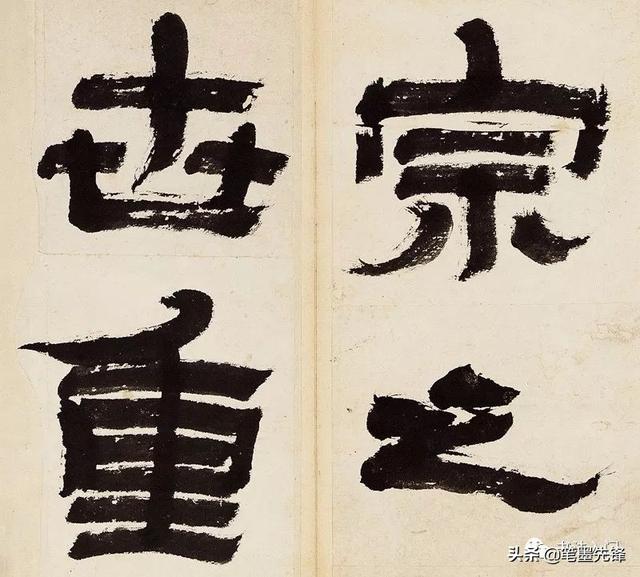 宗之
世重
头条@笔墨先锋